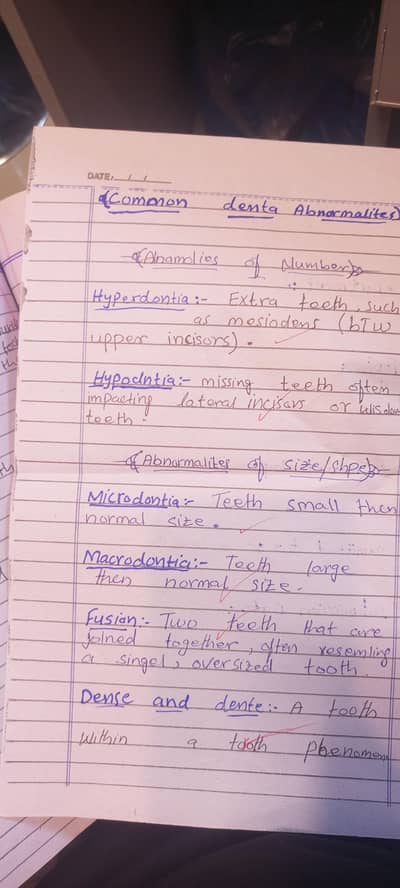 DATE: / /
{Common denta Abnormalites}
{Abamolies of Number}
Hyperdontia:- Extra teeth, such
as mesiodens (bTw
upper incisors).
Hypodntia:- missing teeth often
impacting lateral incisors or wisdom
teeth.
{Abnormalites of size/shpe}
Microdontia:- Teeth small then
normal size.
Macrodontia:- Teeth large
then normal size.
Fusion:- Two teeth that are
joined together, often resemling
a singel, oversized tooth.
Dense and dente:- A tooth
within a tooth phenomenon